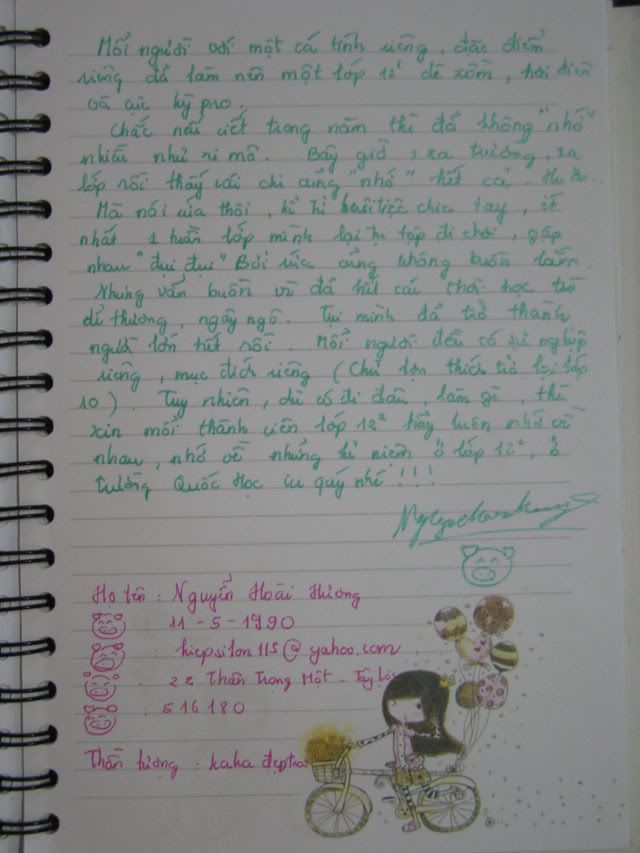 Mỗi người với một cá tính riêng, đặc điểm
riêng đã làm nên một lớp 12¹ dễ xồm, hơi điên
và cực kỳ pro.
Chắc nếu viết trong năm thì đã không "nhớ"
nhiều như ri mô. Bây giờ xa trường, xa
lớp rồi thấy cái chi cũng "nhớ" hết cả. Hu hu..
Mà nói rứa thôi, kể từ chia tay, ít
nhất 1 tuần lớp mình lại tụ tập đi chơi, gặp
nhau "đụi đụi" Bởi rứa cũng không buồn lắm.
Nhưng vẫn buồn vì đã hết cái thời học trò
dễ thương, ngây ngô. Tụi mình đã trở thành
người lớn hết rồi. Mỗi người đều có sự nghiệp
riêng, mục đích riêng (Chứ lợn thích trở lại lớp
10). Tuy nhiên, dù có đi đâu, làm gì, thì
xin mỗi thành viên lớp 12² hãy luôn nhớ về
nhau, nhớ về những kỉ niệm ở lớp 12², ở
trường Quốc Học iu quý nhé!!!
Họ tên : Nguyễn Hoài Hương
: 11-5-1990
: hiepsilon115@yahoo.com
: 22 Thân Trọng Một - Tây Lộc
: 516180
Thần tượng : kaka đẹp